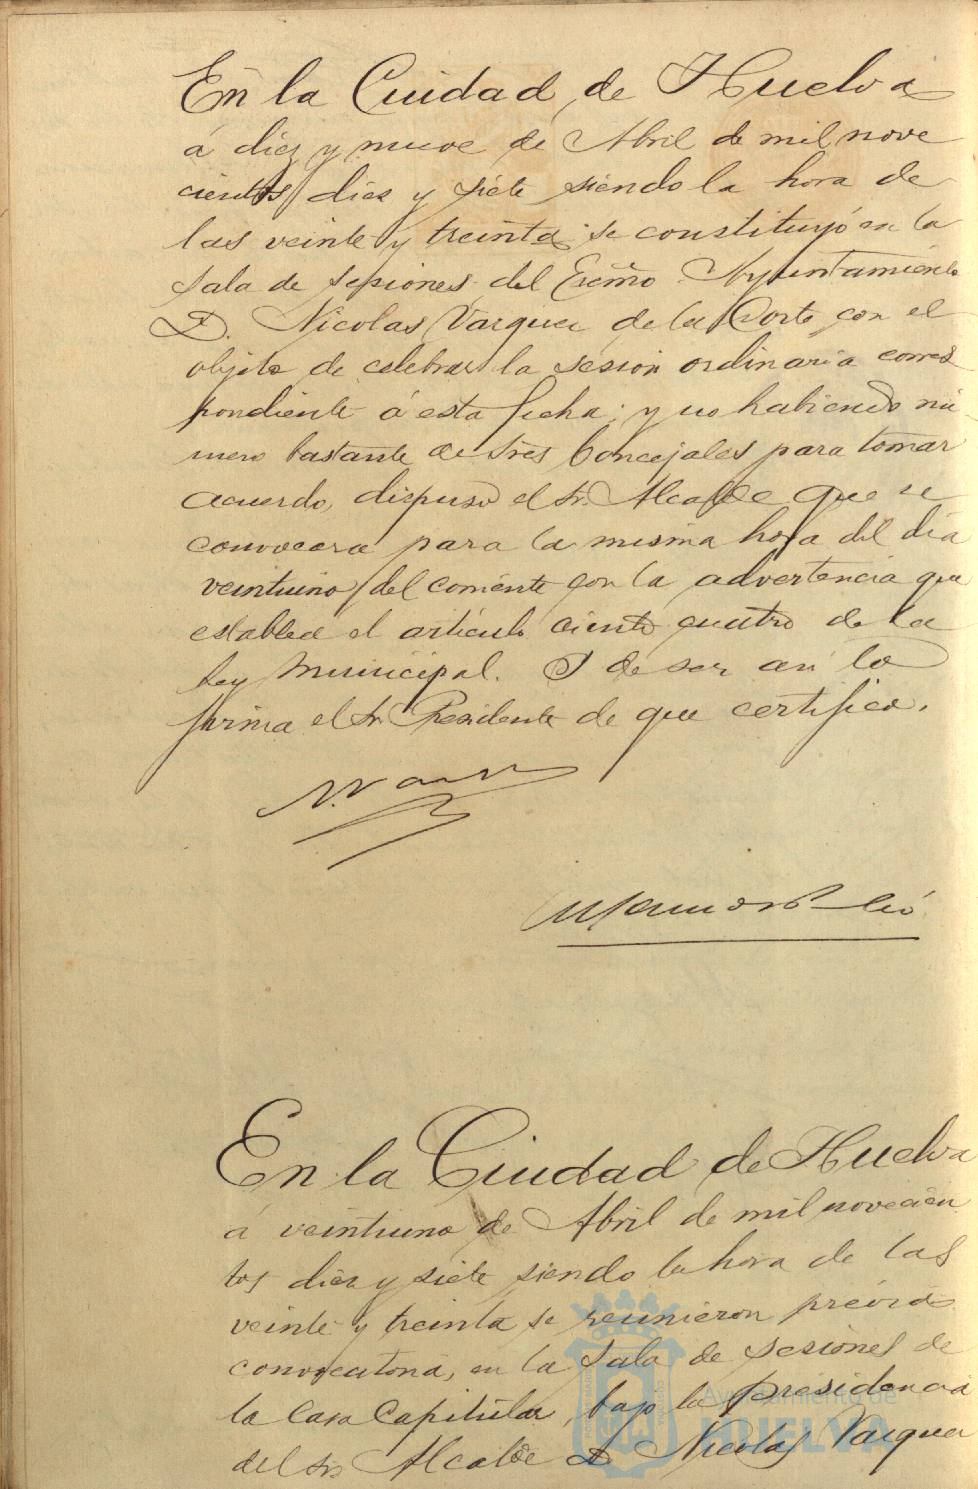 En la Ciudad de Huelva
á diez y nueve de Abril de mil nove
cientos diez y siete siendo la hora de
las veinte y treinta se constituyó en la
Sala de sesiones del Excmo Ayuntamiento
D. Nicolas Vazquez de la Corte con el
objeto de celebrar la sesion ordinaria corres
pondiente á esta fecha; y no habiendo nú
mero bastante de Sres Concejales para tomar
acuerdo, dispuso el Sr. Alcalde que se
convocara para la misma hora del dia
veintiuno del corriente con la advertencia que
establece el artículo ciento cuatro de la
Ley Municipal. Y de ser asi lo
firma el Sr Presidente de que certifico.
En la Ciudad de Huelva
á veintiuno de Abril de mil novecien
tos diez y siete siendo la hora de las
veinte y treinta se reunieron prévia
convocatoria, en la Sala de Sesiones de
la Casa Capitular, bajo la presidencia
del Sr Alcalde D Nicolas Vazquez
Ayuntamiento de
HUELVA